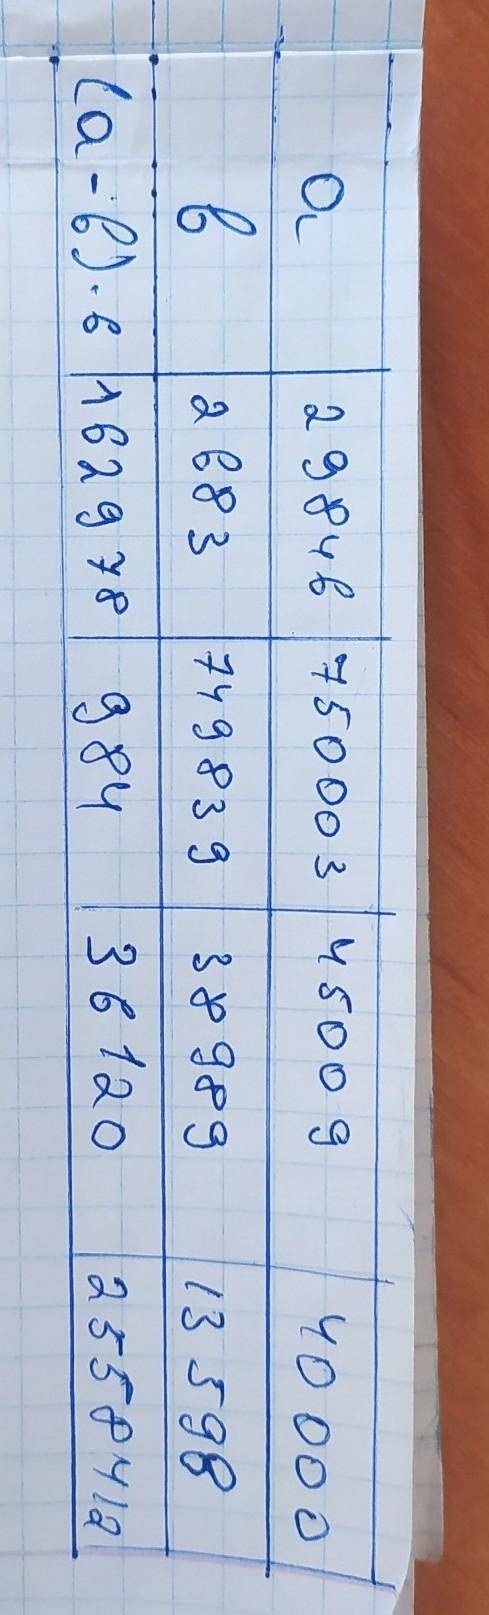 a 29846 750003 45009 40000
в 2683 749839 38989 13598
(a - в) · 6 162978 984 36120 2558412